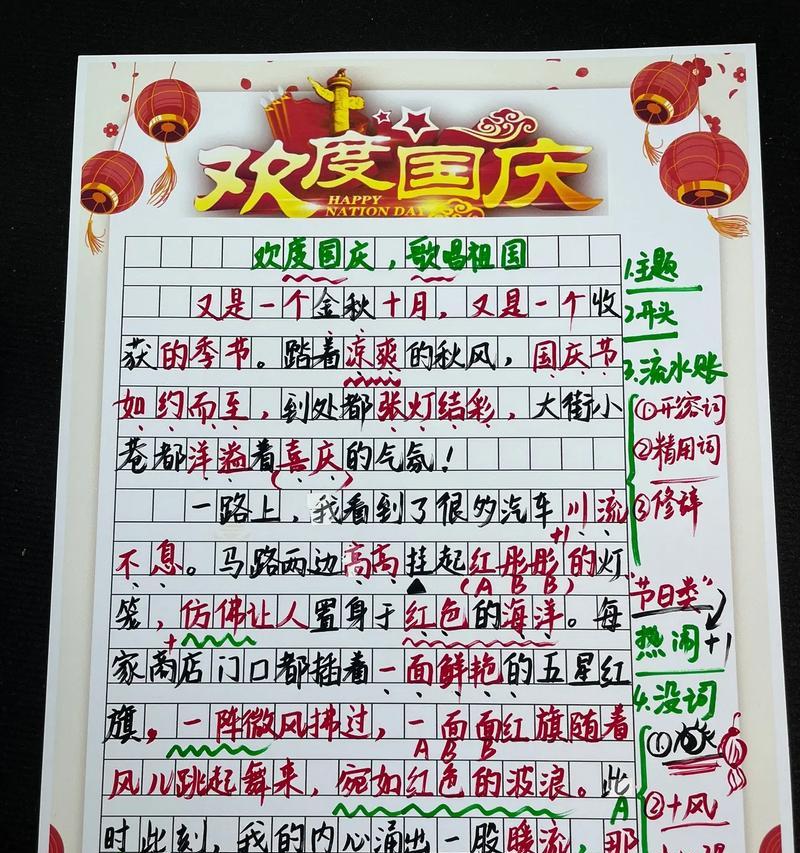 欢度国庆
HAPPY
NATION DAY
欢度国庆，歌唱祖国
又是一个金秋十月，又是一个收
获的季节。踏着凉爽的秋风，国庆节
如约而至，到处都张灯结彩，大街小
巷都洋溢着喜庆的气氛！
一路上，我看到了很多汽车川流
不息。马路两边高高挂起红彤彤的灯
(A B B)
+1
笼，仿佛让人置身于红色的海洋。每
家商店门口都插着一面鲜艳的五星红
旗，一阵微风拂过，一面面红旗随着
A B B
风儿跳起舞来，宛如红色的波浪。此
A
时此刻，我的内心涌出一股暖流，那
1.主题
2.开头
3.流水账
①形容词
②精用词
③修辞
"节日类"
热闹+1
4.没词
①
②+风